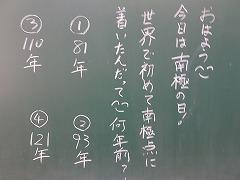 おはよう^^
今日は南極の日！
世界で初めて南極点に
着いたんだって^^何年前？
①81年
②93年
③110年
④121年